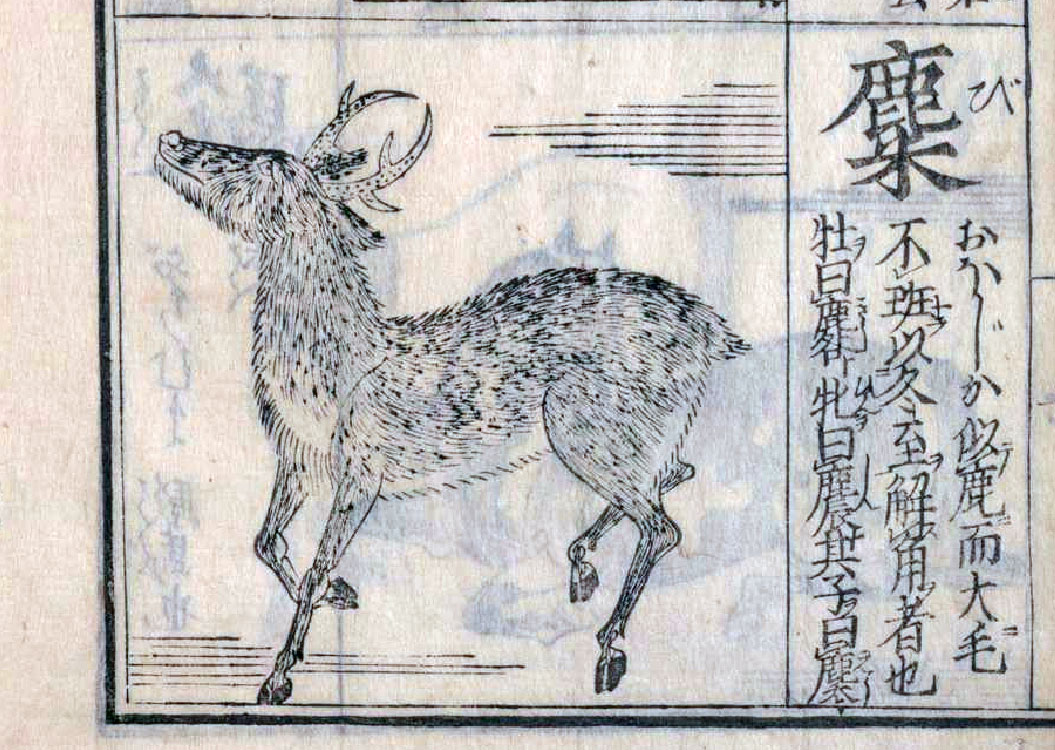 麋
び
おほじか似鹿而大毛
不班以冬至解角者也
牡曰麔牝曰麎其子曰䴠